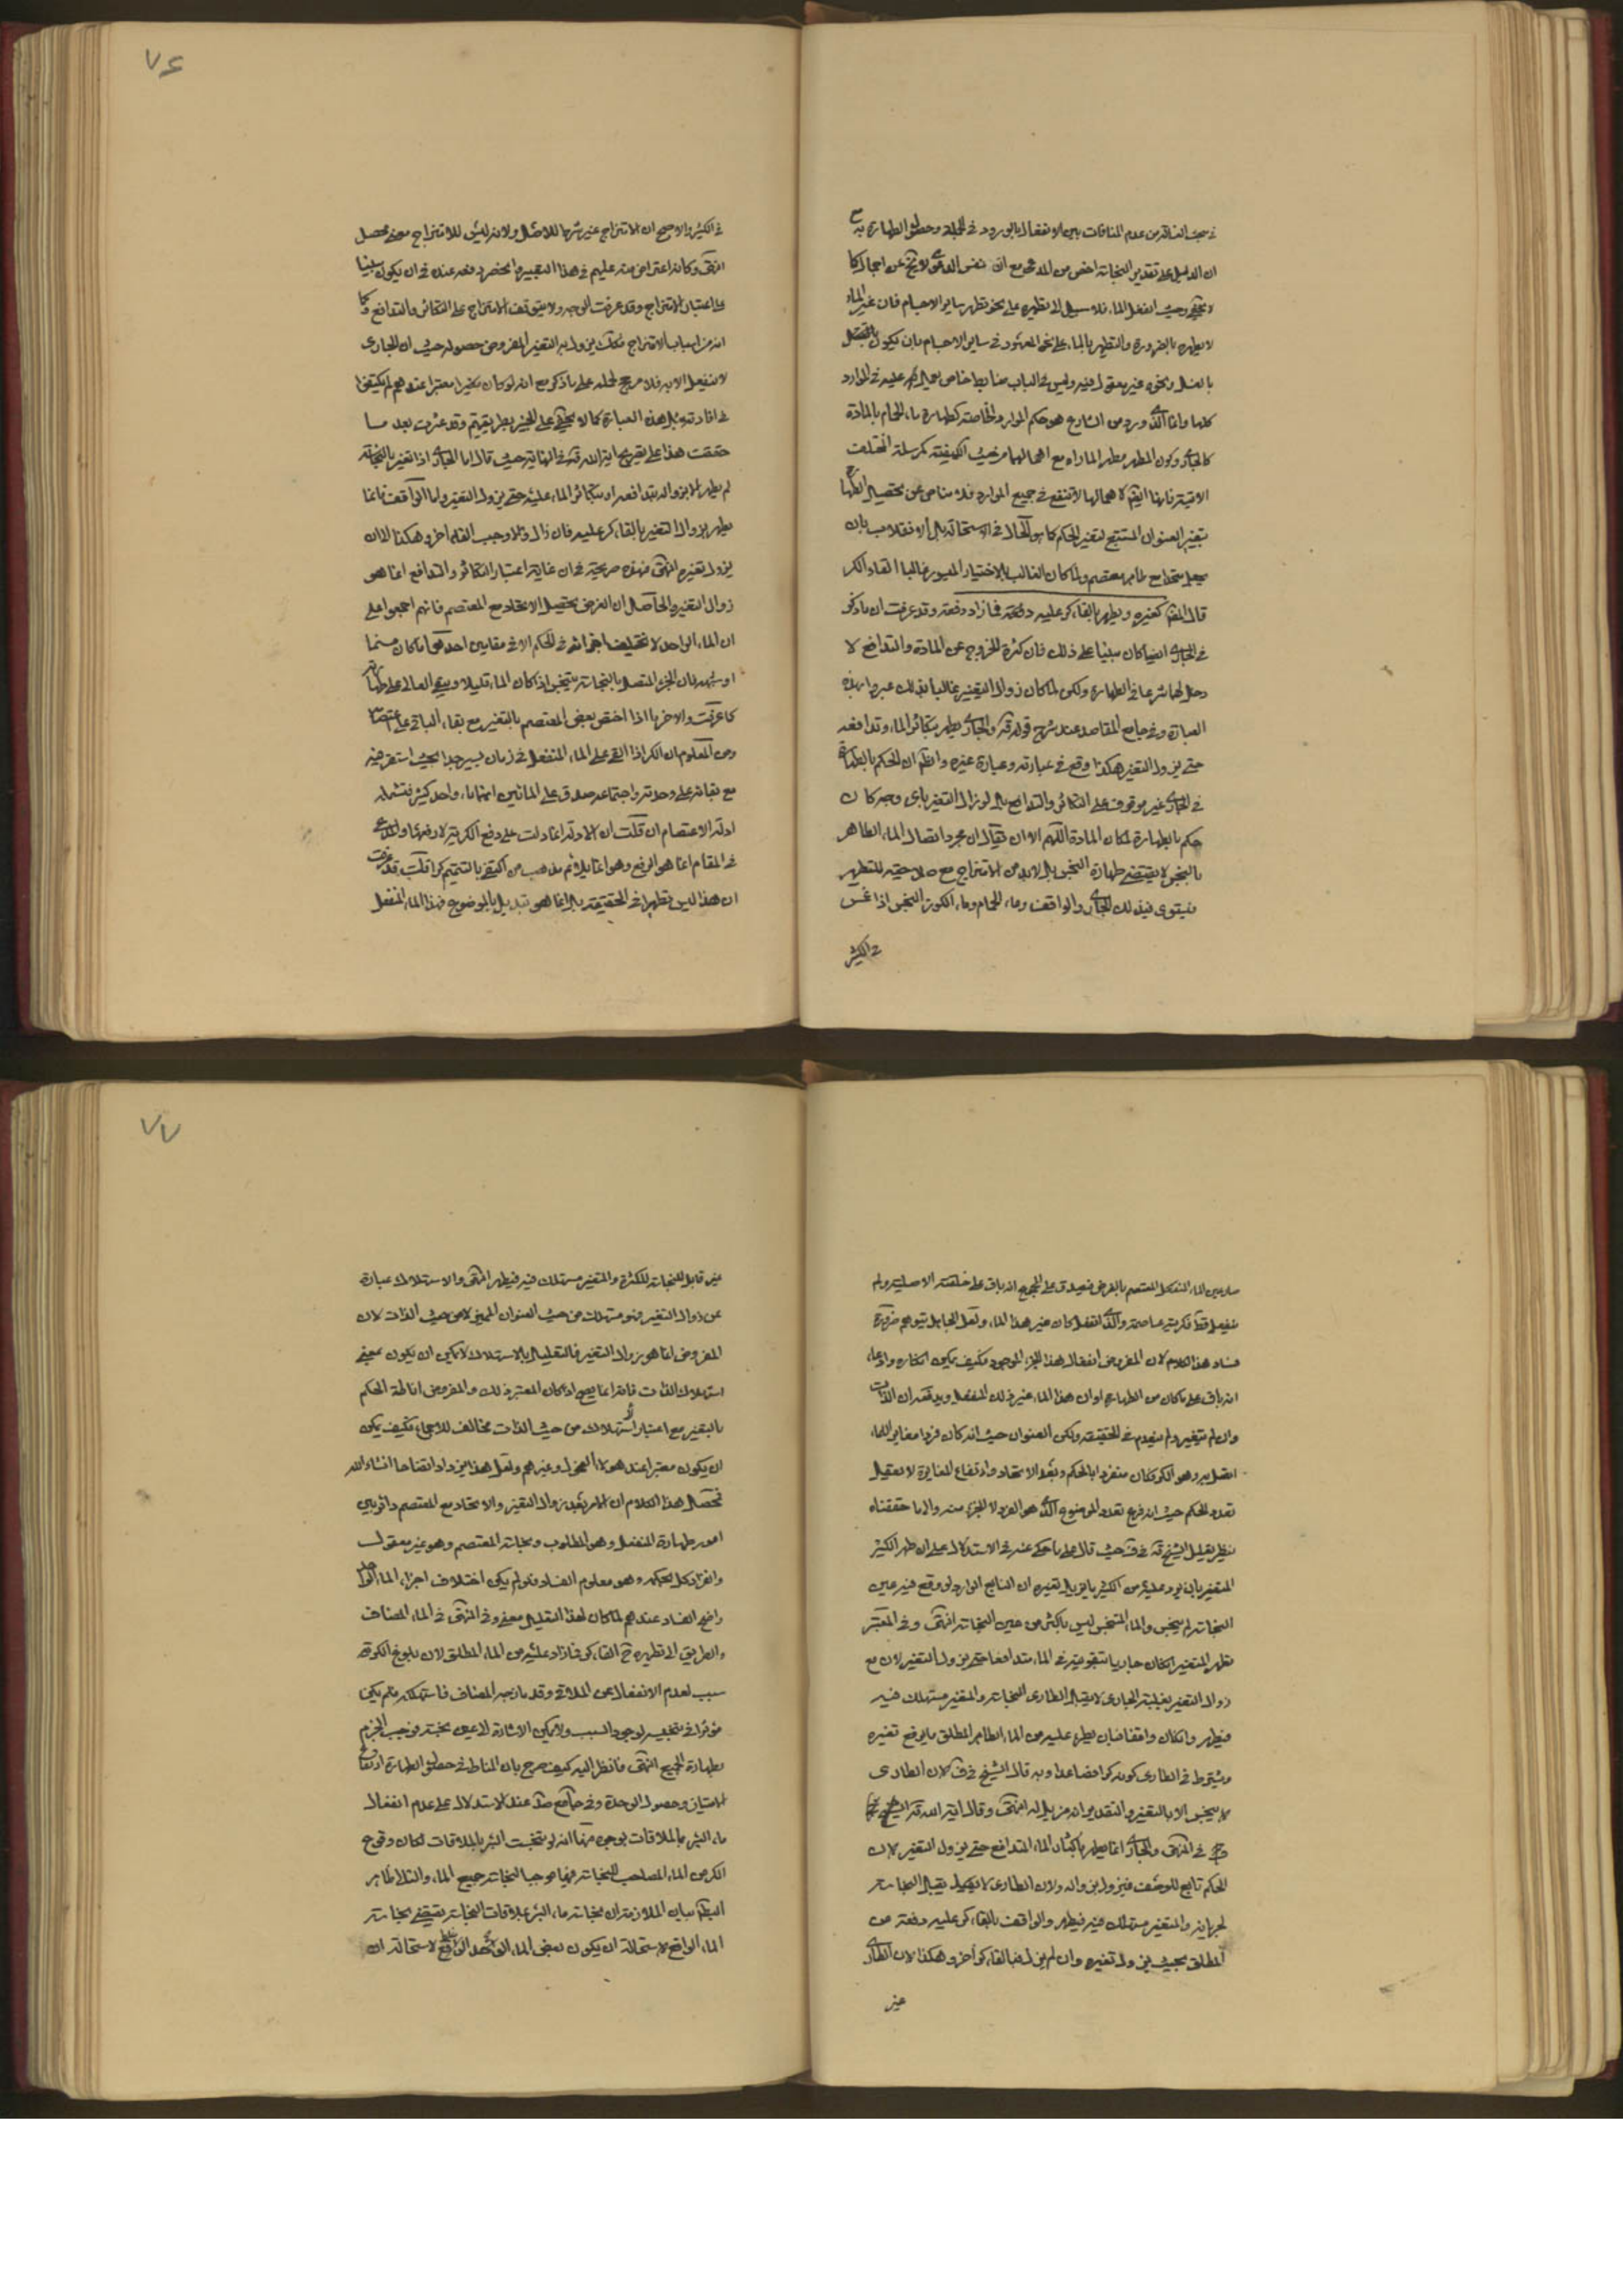 في مبحث الغسالة من عدم المنافات بين الانفعال بالورود في الجملة وحصول الطهارة به
ان الدليل على تقدير النجاسة اخص من المدعى مع ان نفس الدعوى لا تخ عن اجمال كما
لا يخفى وحيث انفعل الماء فلا سبيل الى تطهيره على نحو تطهر ساير الاجسام فان غير الماء
لا يطهره بالضرورة والتطهر بالماء على النحو المعهود في ساير الاجسام بان يكون
بالغسل ونحوه غير معقول فيه وليس في الباب ضابط خاص يعول عليه في الموارد
كلها وانما الذي ورد من الشارع هو حكم الموارد الخاصة كطهارة ماء الحمام بالمادة
كالجاري وكون المطهر مطهر الماء مع اهمالها من حيث الكيفية كمرسلة المختلف
الاتية فانها ايضا لاهمالها لا تنفع في جميع الموارد فلا مناص عن تحصيل الطهارة
بتغير العنوان المستتبع لتغير الحكم كما هو الحال في الاستحالة بل الانقلاب بان
يجعل متحدا مع طاهر معتصم ولما كان الغالب بالاختيار الميسور غالبا القاء الكر
قال المص كغيره ويطهر بالقاء كر عليه دفعة فما زاد دفعة وقد عرفت ان ما ذكر
في الجاري ايضا كان مبنيا على ذلك فان كثرة الخروج عن المادة والتدافع لا
دخل لهما شرعا في الطهارة ولكن لما كان زوال التغير غالبا بذلك عبروا بهذه
العبارة وفي جامع المقاصد عند شرح قوله قده والجاري يطهر بتكاثر الماء وتدافعه
حتى يزول التغير هكذا وقع في عبارته وعبارة غيره والظ ان الحكم بالطهارة
في الجاري غير موقوف على التكاثر والتدافع بل لو زال التغير باي وجه كان
حكم بالطهارة لمكان المادة اللهم الا ان يقال ان مجرد اتصال الماء الطاهر
بالنجس لا يقتضي طهارة النجس بل لا بد من الامتزاج مع صلاحيته للتطهر
فيستوي في ذلك الجاري والواقف وماء الحمام وماء الكوز النجس اذا غمس
في الكثير
٧٤
في الكثير والاصح ان الامتزاج غير شرط للاصل ولانه ليس للامتزاج معنى محصل
انتهى وكان اعتراض منه عليهم في هذا التعبير وانحصر دفعه عنده في ان يكون مبنيا
على اعتبار الامتزاج وقد عرفت الوجه ولا يتوقف الامتزاج على التكاثر والتدافع وكما
انه من اسباب الامتزاج فكك يزول به التغير المفروض حصوله حيث ان الجاري
لا ينفعل الا به فلا مرجح لحمله على ما ذكر مع انه لو كان معتبرا عندهم لم يكتفوا
في افادته بمثل هذه العبارة كما لا يخفى على الخبير بطريقتهم وقد عثرت بعد ما
حققت هذا على تصريح اية الله قده في النهاية حيث قال اما الجاري اذا تغير بالنجاسة
لم يطهر الا بزواله بتدافعه او بتكاثر الماء عليه حتى يزول التغير واما الواقف فانما
يطهر بزوال التغير بالقاء كر عليه فان زال والا وجب القاء اخر وهكذا الى ان
يزول تغيره انتهى فهذه صريحة في ان غاية اعتبار التكاثر والتدافع انما هو
زوال التغير والحاصل ان الغرض تحصيل الاتحاد مع المعتصم فانهم اجمعوا على
ان الماء الواحد لا تختلف اجزائه في الحكم الا في مقامين احدهما ما كان مسنما
او شبهه فان الجزء المتصل بالنجاسة يتنجس اذا كان الماء قليلا ويبقى العالي على طهارته
كما عرفت والاخر ما اذا اختص بعض المعتصم بالتغير مع بقاء الباقي على اعتصامه
ومن المعلوم ان الكر اذا القي على الماء المنفعل في زمان يسير جدا بحيث استقر فيه
مع بقائه على وحدته واجتماعه صدق على المائين انهما ماء واحد كثير فتشمله
ادلة الاعتصام ان قلت ان الادلة انما دلت على دفع الكرية لا رفعها والمدعى
في المقام انما هو الرفع وهو انما يلائم مذهب من اكتفى بالتتميم كرا قلت قد عرفت
ان هذا ليس تطهيرا في الحقيقة بل انما هو تبديل بالموضوع فهذا الماء المنفعل
صار عين الماء المعتصم بالفرض فيصدق على المجموع انه باق على خلقته الاصلية ولم
ينفعل قط فكريته عاصمة والذي انفعل كان غير هذا الماء ولعل الجاهل يتوهم ضرورة
فساد هذا الكلام لان المفروض انفعال هذا الجزء الموجود فكيف يمكن انكاره وادعاء
انه باق على ما كان من الطهارة او ان هذا الماء غير ذلك المنفعل ويدفعه ان الذات
وان لم تتغير ولم ينعدم في الحقيقة ولكن العنوان حيث انه كان فردا مغايرا للماء
اتصل به وهو الكر فكان منفردا بالحكم وبعد الاتحاد وارتفاع المغايرة لا يعقل
تعدد الحكم حيث انه فرع تعدد الموضوع الذي هو الفرد لا الجزء منه والى ما حققناه
ينظر تعليل الشيخ قده في ف حيث قال على ما حكى عنه في الاستدلال على ان طهر الكثير
المتغير بان يرد عليه من الكثير ما يزيل تغيره ان البالغ الوارد لو وقع فيه عين
النجاسة لم ينجس والماء المتنجس ليس باكثر من عين النجاسة انتهى وفي المعتبر
يطهر المتغير ان كان جاريا بتقويته في الماء متدافعا حتى يزول التغير لان مع
زوال التغير بغلبة الجاري لا يقبل الطاري النجاسة والمتغير مستهلك فيه
فيطهر وان كان واقفا فبان يطرء عليه من الماء الطاهر المطلق ما يرفع تغيره
ويشترط في الطاري كونه كرا فصاعدا وبه قال الشيخ في ف لان الطاري
لا ينجس الا بالتغير والتقدير انه مزيل له انتهى وقال اية الله قده
في المنتهى والجاري انما يطهر باكثار الماء المتدافع حتى يزول التغير لان
الحكم تابع للوصف فيزول بزواله ولان الطاري لا يقبل النجاسة
لجريانه والمتغير مستهلك فيه فيطهر والواقف بالقاء كر عليه دفعة من
المطلق بحيث يزول تغيره وان لم يزل فبالقاء كر اخر وهكذا لان الطاري
غير
٧٧
غير قابل للنجاسة للكثرة والمتغير مستهلك فيه فيطهر انتهى والاستهلاك عبارة
عن زوال التغير فهو مستهلك من حيث العنوان المميز لا من حيث الذات لان
المفروض انما هو زوال التغير فالتعليل بالاستهلاك لا يمكن ان يكون بمعنى
استهلاك الذات فانه انما يصح اذا كان المعتبر ذلك والمفروض اناطة الحكم
بالتغير مع اعتبار الاستهلاك من حيث الذات مخالف للاجماع فكيف يمكن
ان يكون معتبرا عند هولاء الفحول وغيرهم ولعل هذا يزداد اتضاحا انشاء الله
فمحصل هذا الكلام ان الامر بعد زوال التغير والاتحاد مع المعتصم دائر بين
امور طهارة المنفعل وهو المطلوب ونجاسة المعتصم وهو غير معقول
وانفراد كل بحكمه وهو معلوم الفساد فلو لم يكن اختلاف اجزاء الماء الواحد
واضح الفساد عندهم لما كان لهذا التعليل معنى وفي المنتهى في الماء المضاف
والطريق الى تطهيره ح القاء كر فما زاد عليه من الماء المطلق لان بلوغ الكرية
سبب لعدم الانفعال عن الملاقي وقد مازجه المضاف فاستهلكه فلم يكن
مؤثرا في تنجيسه لوجود السبب ولا يمكن الاشارة الى عين نجسة فوجب الجزم
بطهارة الجميع انتهى فانظر اليه كيف صرح بان المناط في حصول الطهارة ارتفاع
الامتياز وحصول الوحدة وفي جامع صد عند الاستدلال على عدم انفعال
ماء البئر بالملاقات بوجوه منها انه لو تنجست البئر بالملاقات لكان وقوع
الكر من الماء المصاحب للنجاسة فيها موجبا لنجاسة جميع الماء والتالي ظاهر
البطلان بيان الملازمة ان نجاسة ماء البئر بملاقات النجاسة يقتضي نجاسة
الماء الواقع لاستحالة ان يكون بعض الماء الواحد الواقع لاستحالة ان